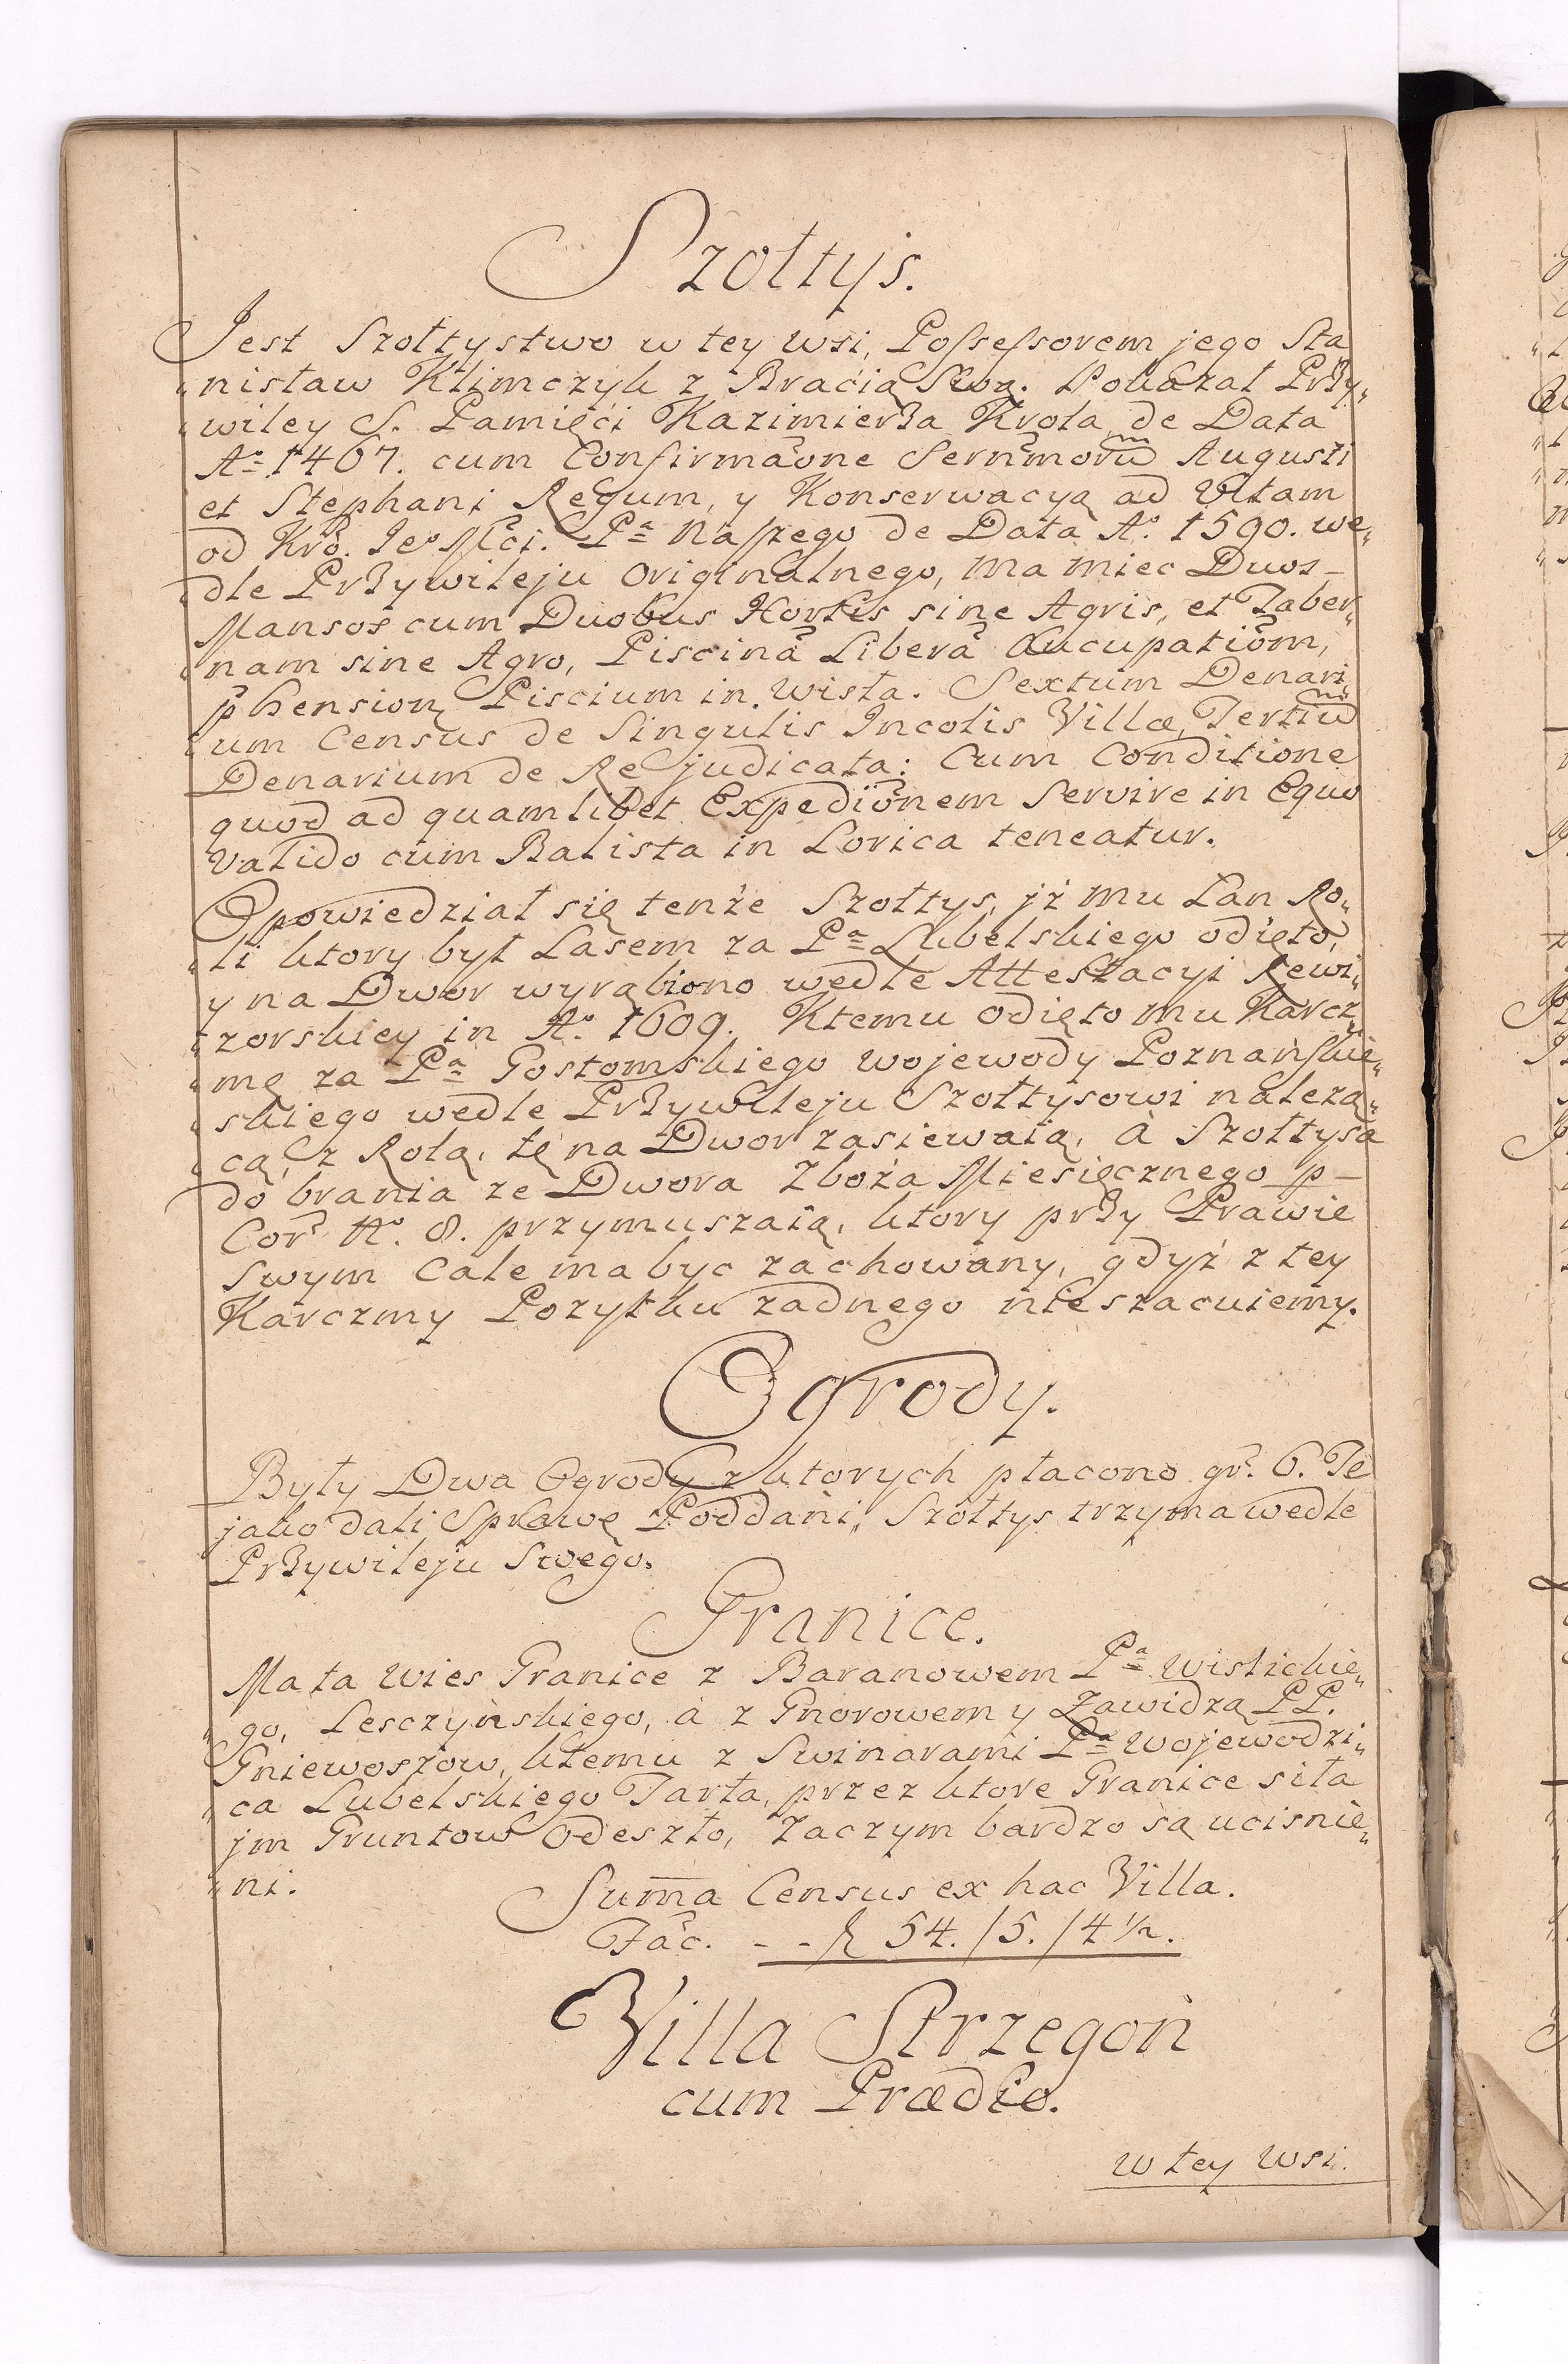 Szołtys.
Jest Szołtystwo w tey wsi, Possessorem jego Sta
„nisław Klimczyk z Bracią Swą. Pokazał Przy„
„wiley S. Pamięći Kazimierza Krola, de Data
Aº 1467. cum Confirmaõne Sernmorũ Augusti
et Stephani Regum, y Konserwacyą ad Vitam
od Kro. Jeº Mći. Pª Naszego de Data Aº. 1590. we„
dle Przywileju Originalnego, ma miec Duos
Mansos cum Duobus Hortis sine Agris, et Taber„
„nam sine Agro, Piscinã Liberã Aucupatiõm,
p̃hension Piscium in Wisła. Sextum Denari„
„um Census de Singulis Incolis Villæ, Tertiũ
Denarium de Re judicata: Cum Conditione
quod ad quamlibet Expediõnem Servire in Equo
valido cum Balista in Lorica teneatur.
Opowiedział się tenże Szołtys, jż mu Łan Ro„
„li ktory był Lasem za Pª Lubelskiego odięto,
y na Dwor wyrąbiono wedle Attestacyi Rewi„
„zorskiey in Aº. 1609. Ktemu odięto mu Karcz„
„mę za Pª Gostomskiego Wojewody Poznańskie„
„skiego wedle Przywileju Szołtysowi należą„
„cą, z Rolą, tę na Dwor zasiewaią, à Szołtysa
do brania ze Dwora Zboża Miesięcznego p
Cor. Nº. 8. przymuszaią, ktory przy Prawie
Swym Cale ma byc zachowany, gdyż z tey
Karczmy Pozytku żadnego nieszacuiemy.
Ogrody.
Były Dwa Ogrody z ktorych płacono gr. 6. Te
jako dali Sprawę Poddani, Szołtys trzyma wedle
Przywileju Swego.
Granice.
Ma ta Wies Granice z Baranowem Pª Wislickie„
„go, Lesczyńskiego, à z Gnorowem y Zawidzą PP.
Gniewoszow, ktemu z Swinarami Pª Wojewodzi„
„ca Lubelskiego Tarła, przez ktore Granice siła
jm Gruntow Odeszło, Zaczym bardzo są ucisnie„
„ni.
Sum̃a Census ex hac Villa.
Fac. - - ƒ 54./5./4½.
Villa Strzegon
cum Prædio.
w tey wsi.